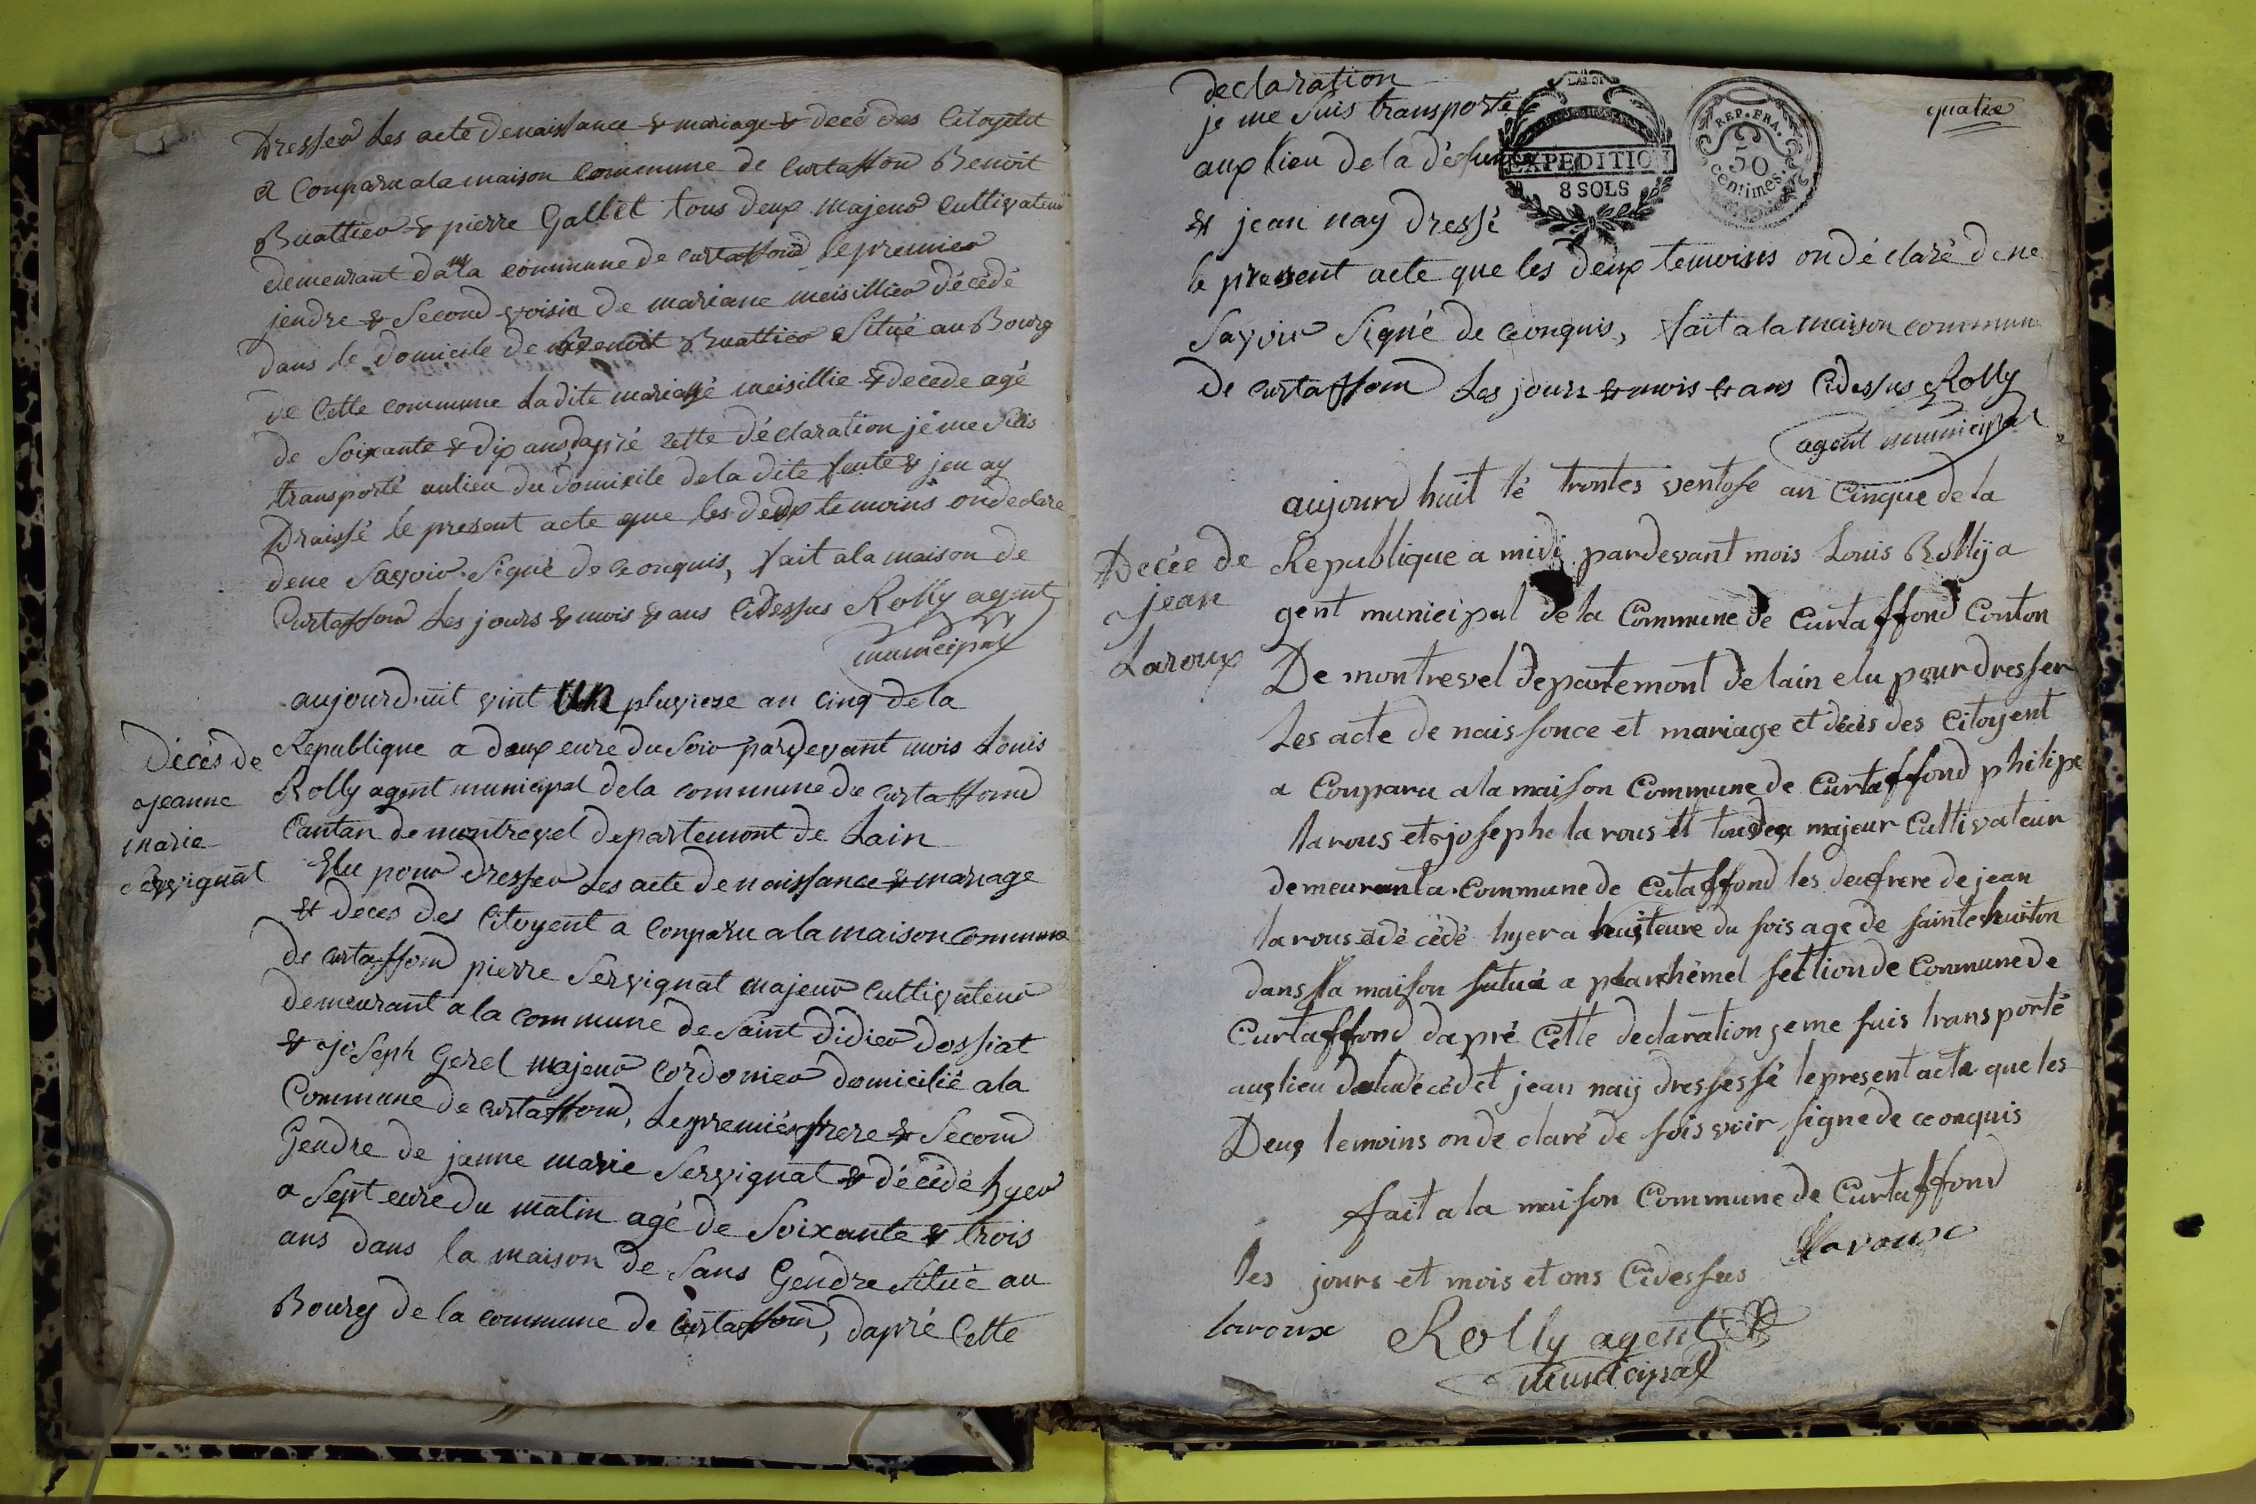 Dresser les acte denaissance & mariage & decé des Citoyent
a Conparu ala maison commune de Curtaffond Benoit
Buattier & pierre Gallet tous deux majeur cultivateur
demeurant dans la commune de Curtaffond le premier
jendre & second voisin de mariane meisillier décédé
dans le domicile de Benoit Buattier situé au Bourg
de cette commune ladite mariane meisillie & decede agé
de soixante & dix ans, dapré cette déclaration je me suis
transporté aulieu du domicile dela dite & jen ay
Draissé le present acte que les deux temoins ondeclare
dene Savoir signé de ceonquis, fait ala maison de
Curtaffond Les jours & mois & ans Cidessus Rolly agent
municipal
aujourduit vint un pluvieze an cinq dela
Décés de
jeanne
marie
Servignat
Republique a deux eure du soir pardevant mois Louis
Rolly agent municipal dela commune de Curtaffond
Cantan de montrevel departement de Lain
Elu pour dresser Les acte de naissance & mariage
& deces des Citoyent a Conparu ala maison commune
de Curtaffond pierre Servignat majeur Cultivateur
demeurant a la commune de Saint didier dossiat
& joseph Gerel majeur Cordonier domicilié ala
Commune de Curtaffond, Le premié frere & second
Gendre de janne marie Servignat & décédé hyer
a sept eure du matin agé de Soixante & trois
ans dans la maison de sans Gendre situé au
Bourg de la commune de Curtaffond, dapré Cette
quatre
declaration
je me suis transporté
aux lieu dela défunte
EXPEDITION
8 SOLS
REP. FRA.
50
centimes.
& jean nay dressé
le present acte que les deux temoins on déclaré dene
Savoir Signé de ceonquis, fait ala maison commun
de Curtaffond Les jours & mois & ans Cidessus Rolly
agent municipal
aujourd huit lé trontes ventose an Cinque de la
Decée de
jean
Laroux
Republique a midi pardevant mois Louis Rollij a
gent municipal de la Commune de Curtaffond Conton
De montrevel departemont de lain elu pour dresser
Les acte de naissonce et mariage et décès des Citoyent
a Conparu a la maison Commune de Curtaffond philipe
larous et josephe la rous et tousdeu majeur Cultivateur
demeurant a Commune de Cutaffond les deu frere de jean
larous & dé cédé hyer a huiteure du sois age de sainte huiton
dans sa maison situé a planchemel section de Commune de
Curtaffond dapré Cette declaration je me suis transporté
aus lieu de la décédet jean naij dressessé le present acte que les
Deus temoins on de claré de soisvoir signe de ceonquis
fait a la maison Commune de Curtaffond
laroux
les jours et mois et ons Cidessus
laroux Rolly agent
municipal